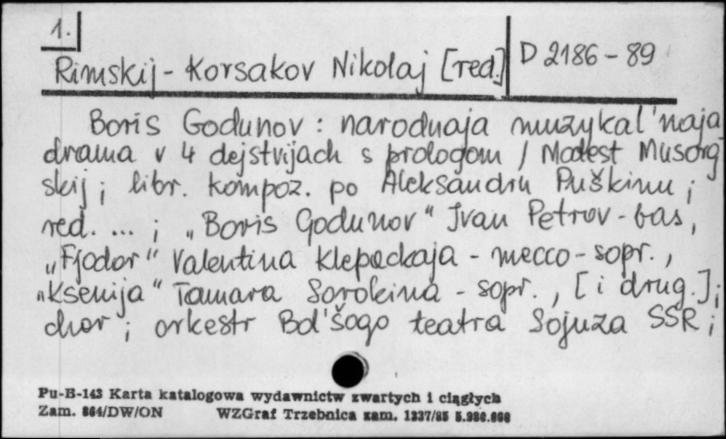 1.
Rimskij - Korsakov Nikolaj [red.] D 2186 - 89
Boris Godunov : narodnaja muzykal'naja
drama v 4 dejstvijach s prologom / Modest Musorg
skij ; libr. kompoz. po Aleksandru Puškinu ;
red. ... ; „Boris Godunov" Ivan Petrov - bas,
„Fjodor" Valentina Klepackaja - mecco - sopr. ,
„Ksenija" Tamara Sorokina - sopr. , [i drug.] ;
chor ; orkestr Bol'šogo teatra Sojuza SSR ;
Pu-B-143 Karta katalogowa wydawnictw zwartych i ciągłych
Zam. 864/DW/ON WZGraf Trzebnica zam. 1337/85